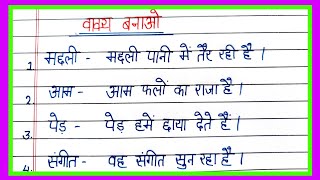 वाक्य बनाओ
1. मछली - मछली पानी में तैर रही है ।
2. आम - आम फलों का राजा है ।
3. पेड़ - पेड़ हमें छाया देते हैं ।
4. संगीत - वह संगीत सुन रहा है ।